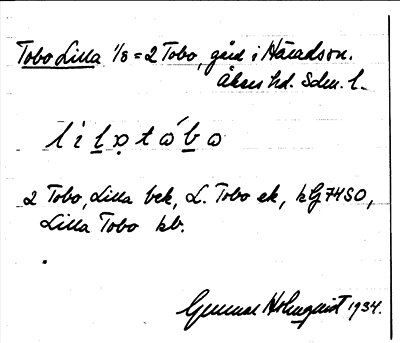 Tobo Lilla 1/8 = 2 Tobo, gård i Häradson.
Åkers hd. Sdm. l.
lilạtóbo
2 Tobo, Lilla bek, L. Tobo ek, kG 74 SO,
Lilla Tobo kb.
Gunnar Holmquist 1934.